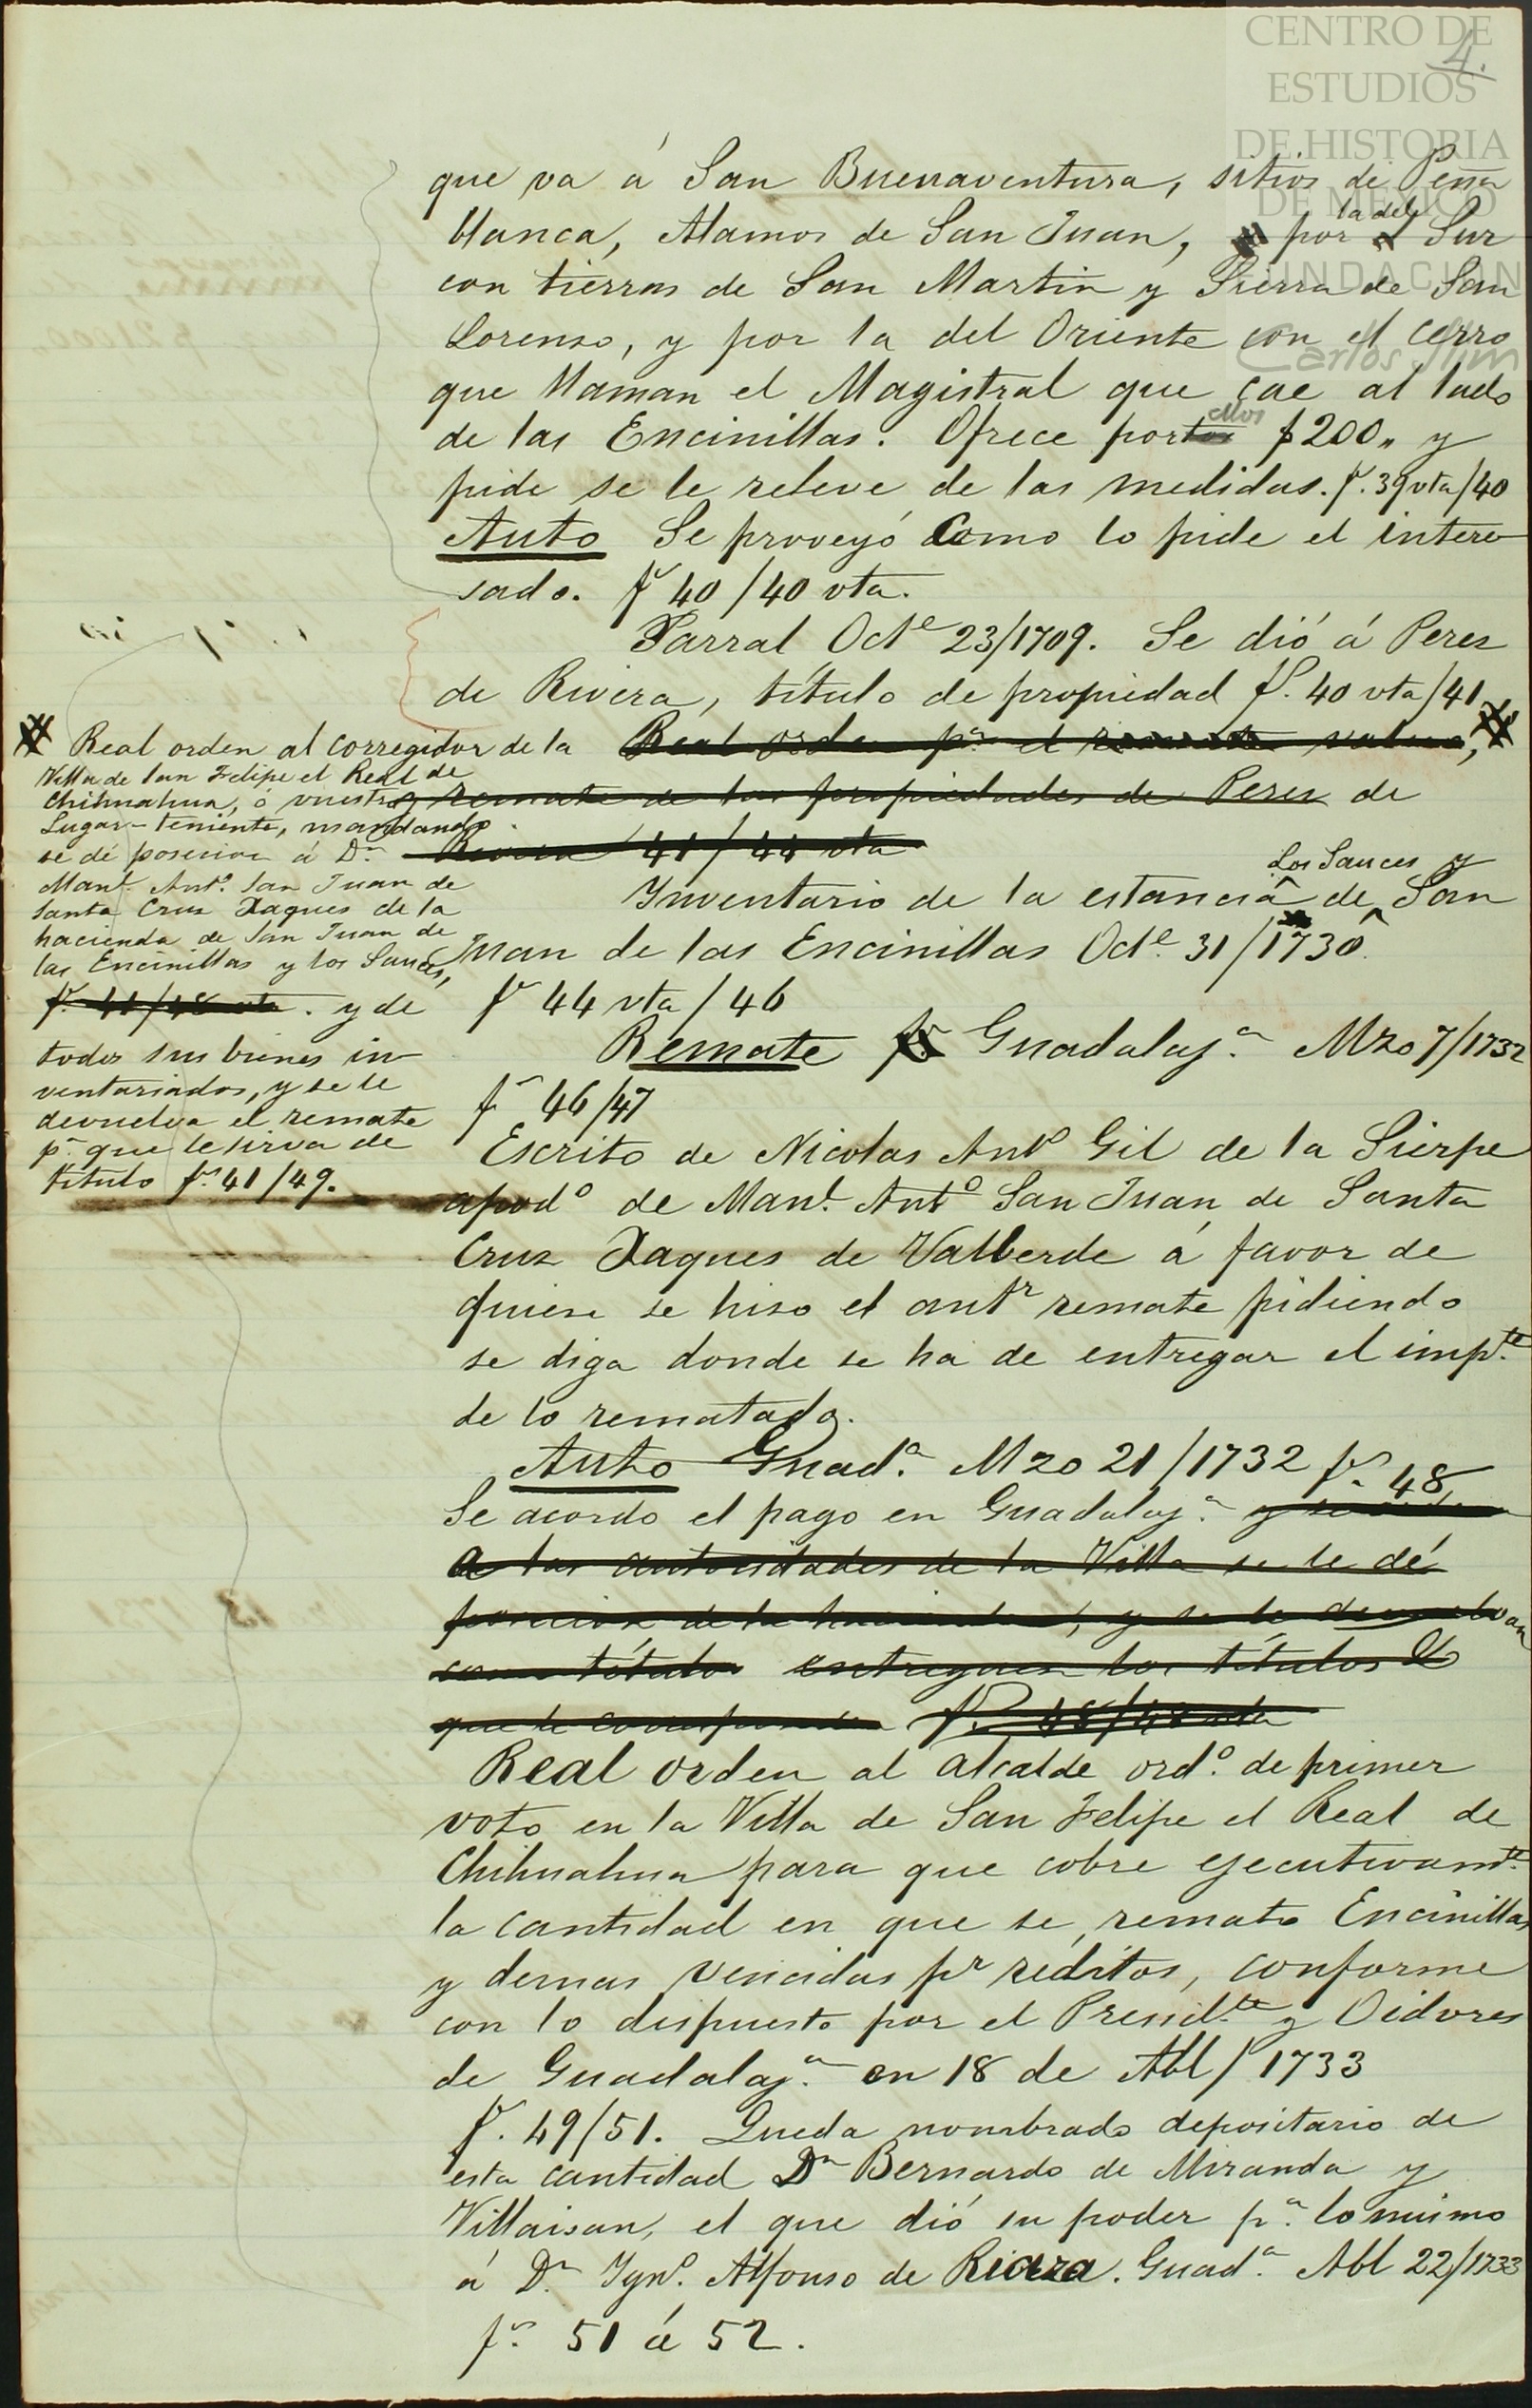 CENTRO DE
ESTUDIOS
DE HISTORIA
DE MEXICO
FUNDACION
Carlos Slim
4.
que va á San Buenaventura, sitios de Peña
blanca, Alamos de San Juan, por la del Sur
con tierras de San Martin y Sierra de San
Lorenso, y por la del Oriente con el cerro
que llaman el Magistral que cae al lado
de las Encinillas. Ofrece por ellos $200,, y
pide se le releve de las medidas. f. 39 vta/40
Auto Se proveyó como lo pide el intere
sado. fs 40/40 vta.
Parral Octe 23/1709. Se dió á Peres
de Rivera, título de propiedad fs. 40 vta/41
Real orden pa el remate
y remate de las propiedades de Peres de
Rivera 41/44 vta
Real orden al corregidor de la
Villa de San Felipe el Real de
Chihuahua, ó vuestro
Lugar-teniente, mandando
se dé posecion á Dn
Manl. Anto. San Juan de
Santa Cruz Xaques de la
hacienda de San Juan de
las Encinillas y los Sauces,
fs 41/48 vta. y de
todos sus bienes in
ventariados, y se le
devuelva el remate
pa que le sirva de
titulo fs. 41/49.
Inventario de la estancia de Los Sauces y San
Juan de las Encinillas Octe. 31/1730.
fs 44 vta/46
Remate Guadalaja. Mzo 7/1732
fs 46/47
Escrito de Nicolas Anto Gil de la Sierpe
apodo de Manl. Anto San Juan de Santa
Cruz Xaques de Valberde á favor de
quien se hiso el antr remate pidiendo
se diga donde se ha de entregar el impte
de lo rematado.
Auto Guada. Mzo 21/1732 fs. 48
Se acordo el pago en Guadalaja.
a las autoridades de la Villa se le dé
posecion de la hacienda, y se le devuelvan
como títulos entreguen los títulos
que le corresponden fs. 48/48 vta
Real orden al alcalde ordo. de primer
voto en la Villa de San Felipe el Real de
Chihuahua para que cobre ejecutivamte
la cantidad en que se remato Encinillas
y demas vencidas pr réditos, conforme
con lo dispuesto por el Presidte y Oidores
de Guadalaja. en 18 de Abl/1733
fs. 49/51. Queda nombrado depositario de
esta cantidad Dn Bernardo de Miranda y
Villaisan, el que dió su poder pa. lo mismo
á Dn Igno. Alfonso de Riaza. Guada. Abl 22/1733
fs. 51 á 52.